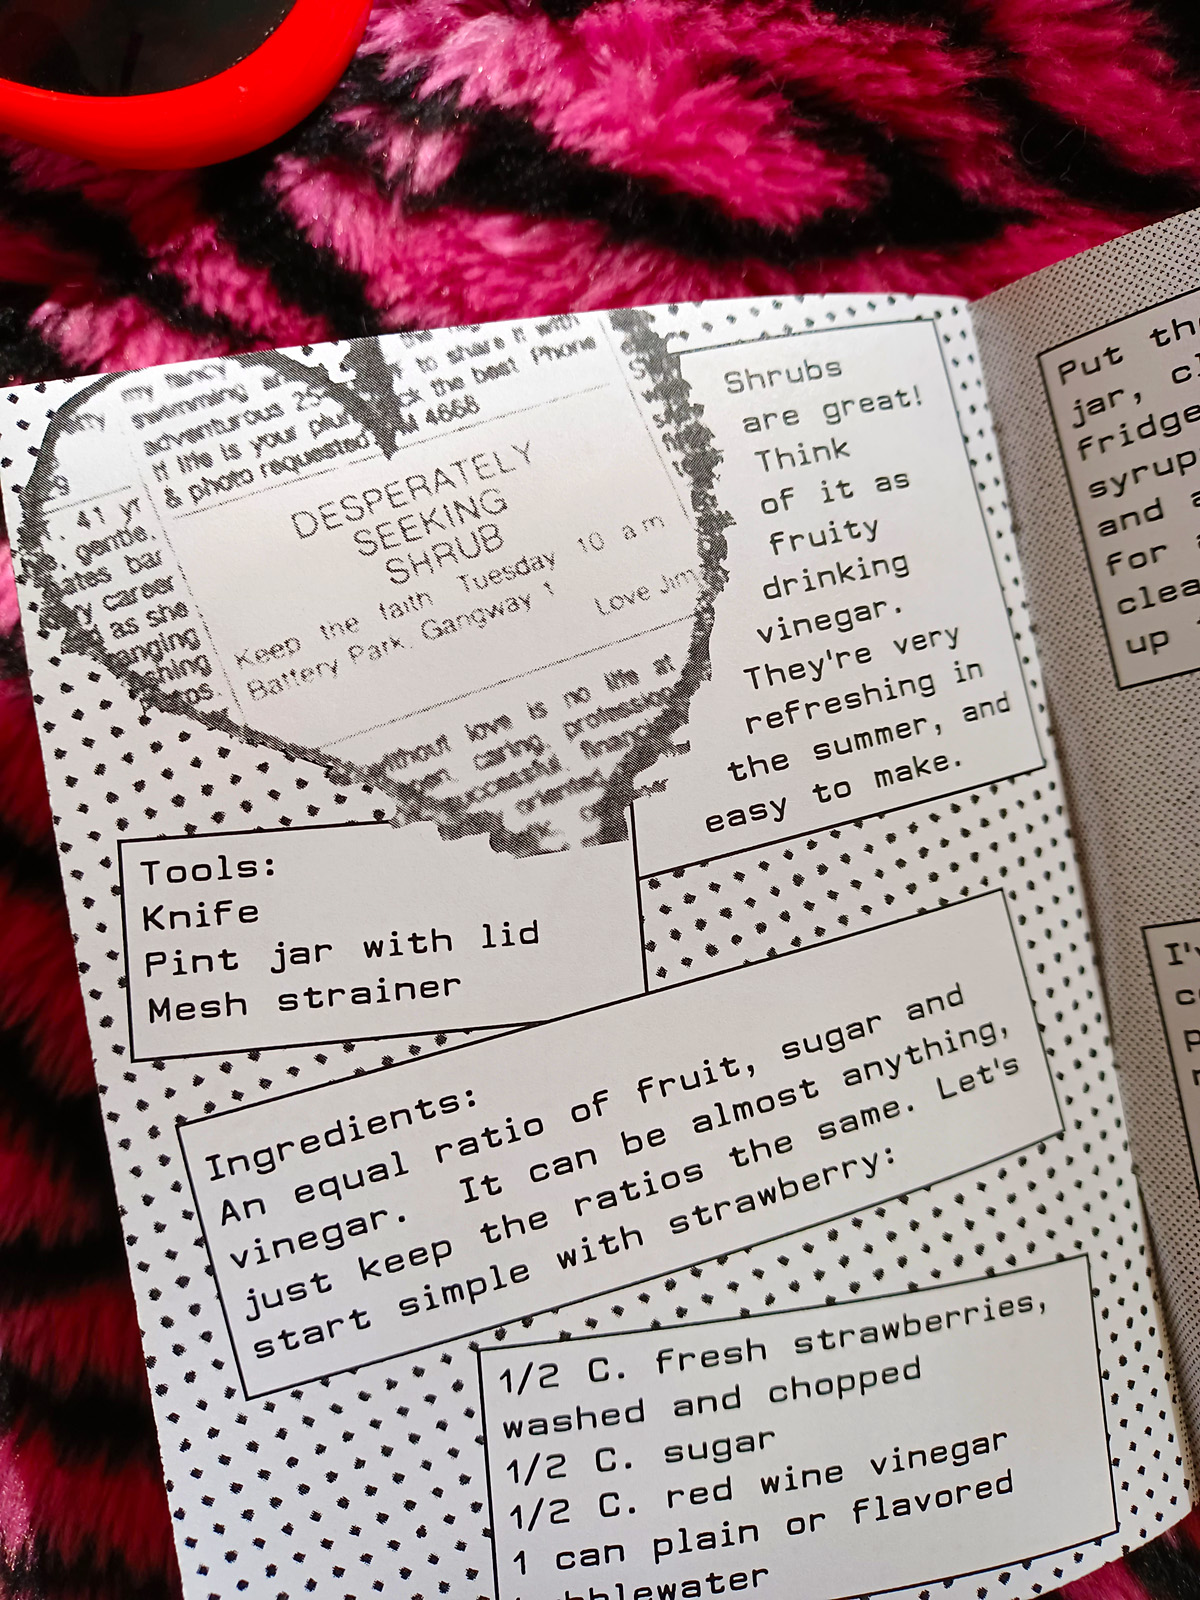 my fancy
swimming
to share it with
adventurous 25-
the best Phone
If life is your
4668
& photo requested
41 yr
gentle.
bar
career
as she
DESPERATELY
SEEKING
SHRUB
Keep the faith Tuesday 10 am
Battery Park, Gangway 1
Love Jim
love is no life at
caring, profession
successful, financ
oriented
Shrubs
are great!
Think
of it as
fruity
drinking
vinegar.
They're very
refreshing in
the summer, and
easy to make.
Tools:
Knife
Pint jar with lid
Mesh strainer
Ingredients:
An equal ratio of fruit, sugar and
vinegar. It can be almost anything,
just keep the ratios the same. Let's
start simple with strawberry:
1/2 C. fresh strawberries,
washed and chopped
1/2 C. sugar
1/2 C. red wine vinegar
1 can plain or flavored
bblewater
Put th
jar, c
fridge
syrup
and a
for a
clea
up
I'v
c
p